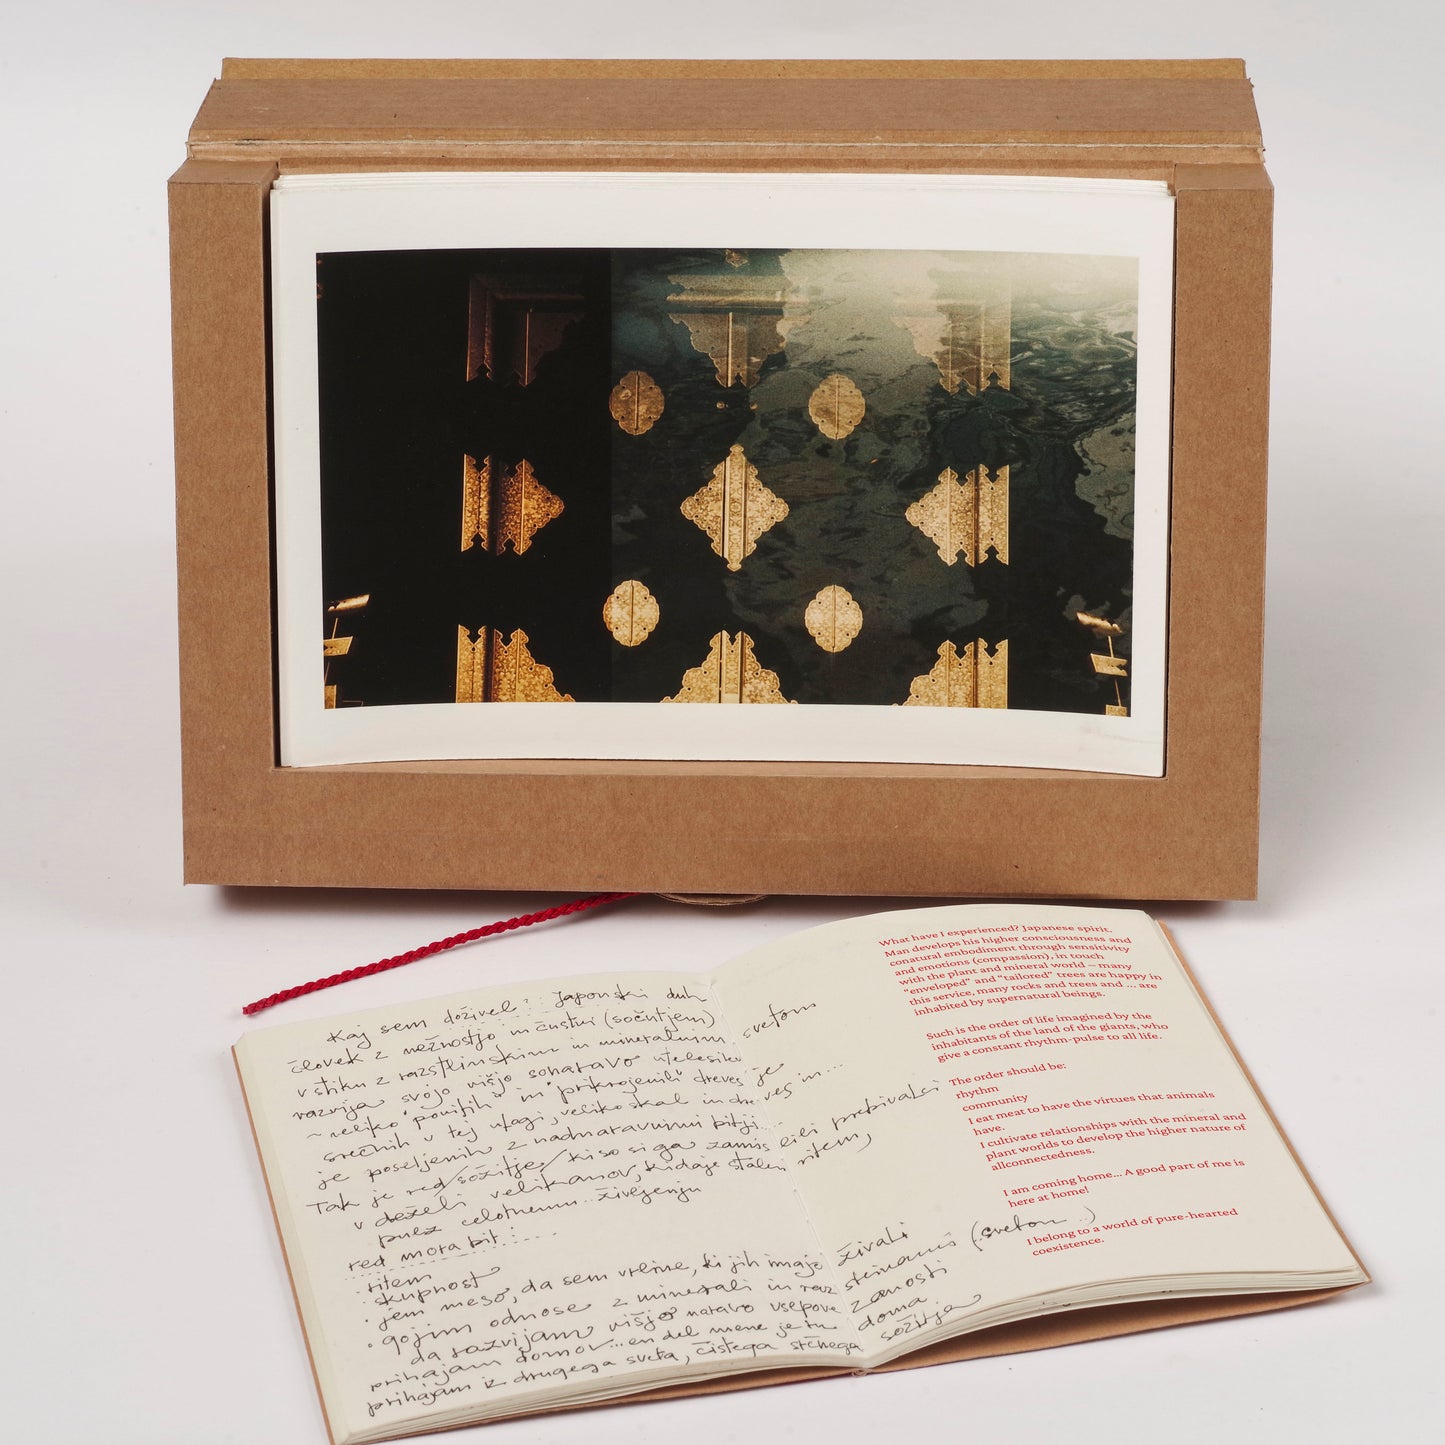 Kaj sem doživel? Japonski duh
človek z nežnostjo in čustvi (sočutjem)
v stiku z rastlinskim in mineralnim svetom
razvija svojo višjo sonaravo utelesitev
– veliko "povitih" in "prikrojenih" dreves je
srečnih v tej vlogi, veliko skal in dreves in ...
je poseljenih z nadnaravnimi bitji ...
Tak je red/sožitje/ki so si ga zamislili prebivalci
v deželi velikanov, ki daje stalen ritem,
pulz celotnemu življenju
red mora biti:
ritem
· skupnost
· jem meso, da sem vrline, ki jih imajo živali
· gojim odnose z minerali in (svetom ..)
da razvijam višjo naravo
prihajam domov... en del mene je tu doma
prihajam iz drugega sveta, čistega sožitja
What have I experienced? Japanese spirit.
Man develops his higher consciousness and
conatural embodiment through sensitivity
and emotions (compassion), in touch
with the plant and mineral world – many
"enveloped" and "tailored" trees are happy in
this service, many rocks and trees and ... are
inhabited by supernatural beings.
Such is the order of life imagined by the
inhabitants of the land of the giants, who
give a constant rhythm-pulse to all life.
The order should be:
rhythm
community
I eat meat to have the virtues that animals
have.
I cultivate relationships with the mineral and
plant worlds to develop the higher nature of
allconnectedness.
I am coming home... A good part of me is
here at home!
I belong to a world of pure-hearted
coexistence.